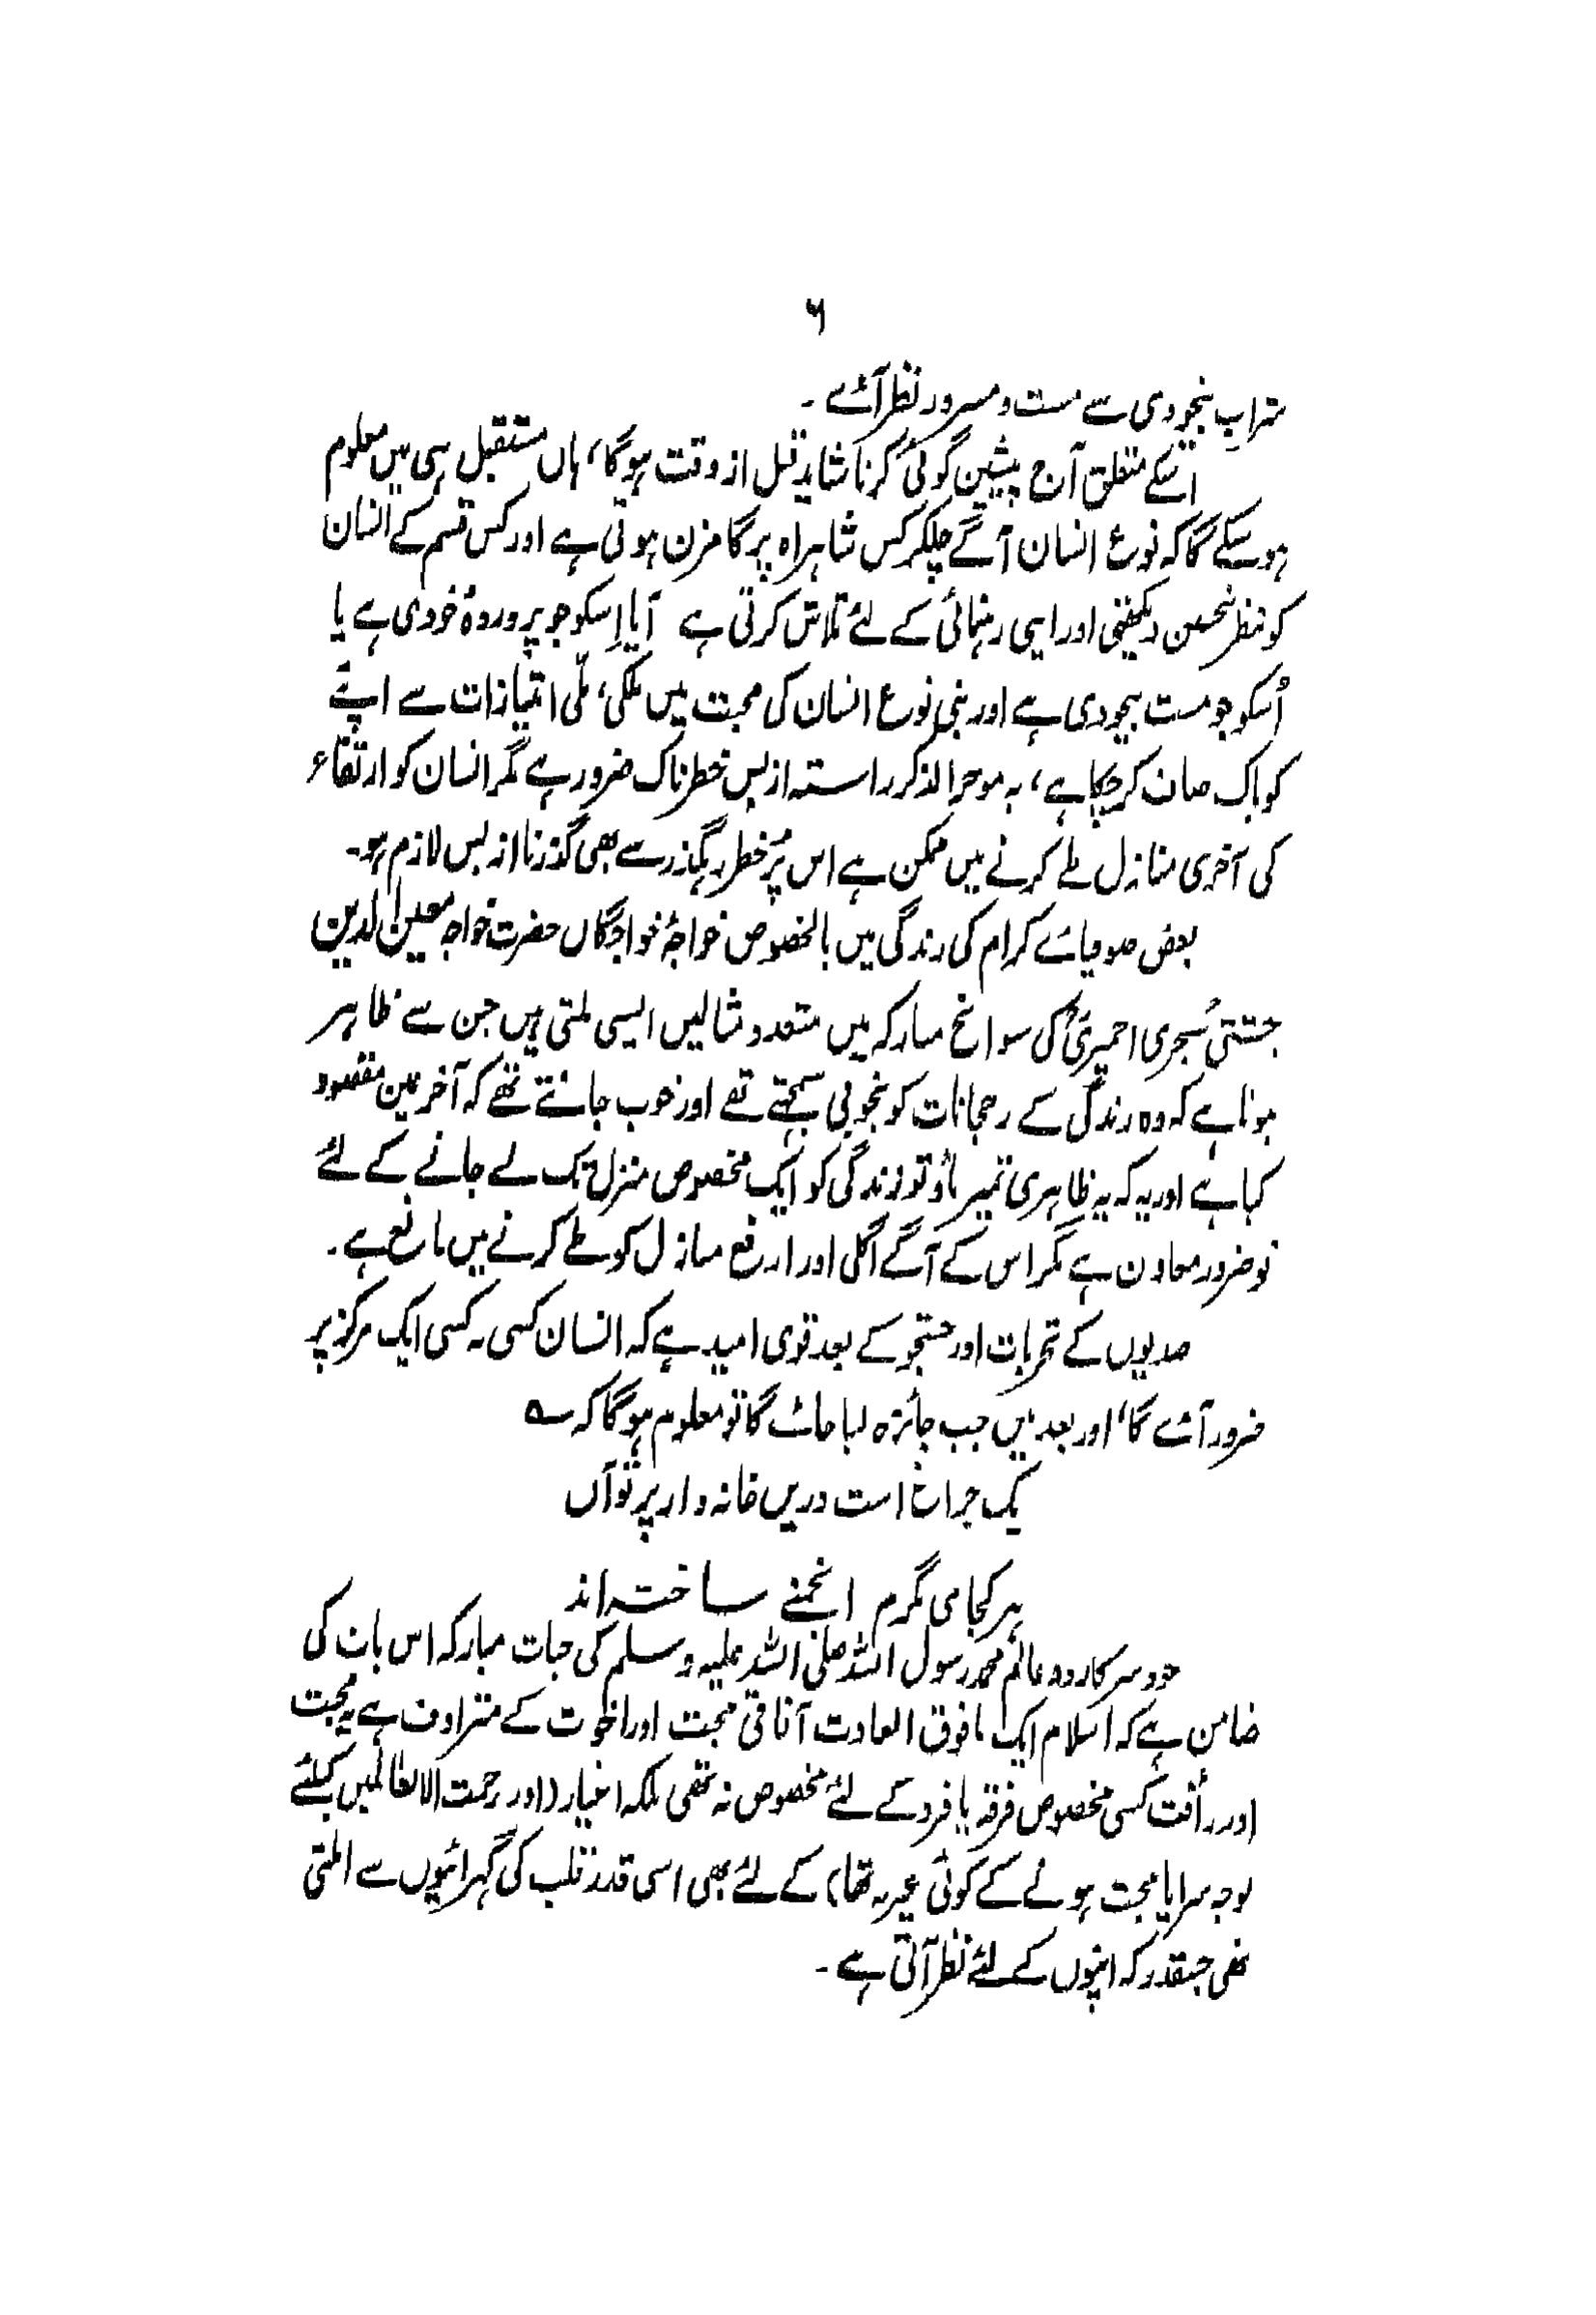 ۶
شرابِ بیخودی سے مست و مسرور نظر آئے ۔
اسکے متعلق آج پیشین گوئی کرنا شاید قبل از وقت ہوگا، ہاں مستقبل ہی میں معلوم
ہوسکے گا کہ نوع انسان آگے چلکر کس شاہراہ پر گامزن ہوتی ہے اور کس قسم کے انسان
کو بنظر تحسین دیکھتی اور اپنی رہنمائی کے لئے تلاش کرتی ہے آیا اِسکو جو پروردۂ خودی ہے یا
اُسکو جو مست بیخودی ہے اور بنی نوع انسان کی محبت میں ملکی، ملّی امتیازات سے اپنے
کو پاک صاف کرچکا ہے، یہ موخر الذکر راستہ ازبس خطرناک ضرور ہے مگر انسان کو ارتقاء
کی آخری منازل طے کرنے میں ممکن ہے اس پُرخطر رہگذر سے بھی گذرنا ازبس لازم ہو۔
بعض صوفیائے کرام کی زندگی میں بالخصوص خواجۂ خواجگاں حضرت خواجہ معین الدین
چشتی سجزی اجمیریؒ کی سوانح مبارکہ میں متعدد مثالیں ایسی ملتی ہیں جن سے ظاہر
ہوتا ہے کہ وہ زندگی کے رجحانات کو بخوبی سمجھتے تھے اور خوب جانتے تھے کہ آخر میں مقصود
کیا ہے اور یہ کہ یہ ظاہری تمیز ماؤ تو زندگی کو ایک مخصوص منزل تک لے جانے کے لئے
تو ضرور معاون ہے مگر اس کے آگے اگلی اور ارفع منازل کو طے کرنے میں مانع ہے ۔
صدیوں کے تجربات اور جستجو کے بعد قوی امید ہے کہ انسان کسی نہ کسی ایک مرکز پر
ضرور آئے گا، اور بعد میں جب جائزہ لیا جائے گا تو معلوم ہوگا کہ ؎
یک چراغ است دریں خانہ و از پرتو آں
ہر کجا می نگرم انجمنے ساختہ اند
خود سرکار دو عالم محمد رسول اللہ صلی اللہ علیہ وسلم کی حیات مبارکہ اس بات کی
ضامن ہے کہ اسلام ایک مافوق العادت آفاقی محبت اور اخوت کے مترادف ہے یہ محبت
اور رأفت کسی مخصوص فرقہ یا فرد کے لئے مخصوص نہ تھی بلکہ اغیار (اور رحمت للعالمیں کیلئے
بوجہ سراپا محبت ہونے کے کوئی غیر نہ تھا) کے لئے بھی اسی قدر قلب کی گہرائیوں سے ابلتی
تھی جسقدر کہ اپنوں کے لئے نظر آتی ہے ۔